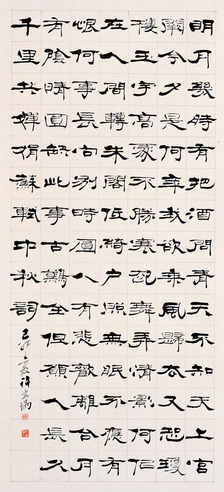 明月幾時有把酒問青天不知天上宮
闕今夕是何年我欲乘風歸去又恐瓊
樓玉宇高處不勝寒起舞弄清影何似
在人間轉朱閣低綺戶照無眠不應有
恨何事長向別時圓人有悲歡離合月
有陰晴圓缺此事古難全但願人長久
千里共嬋娟蘇軾中秋詞
己卯之夏許